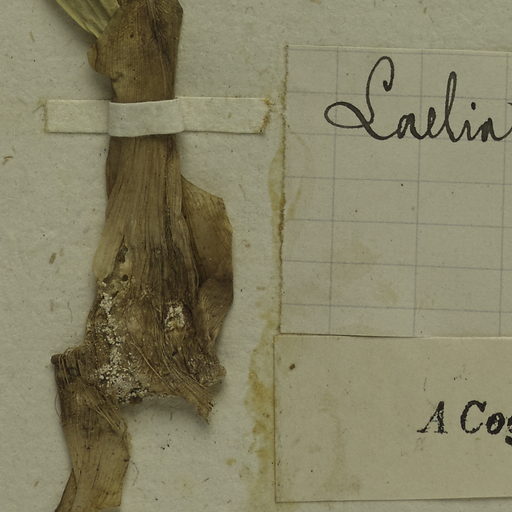 Laelia
A Cog